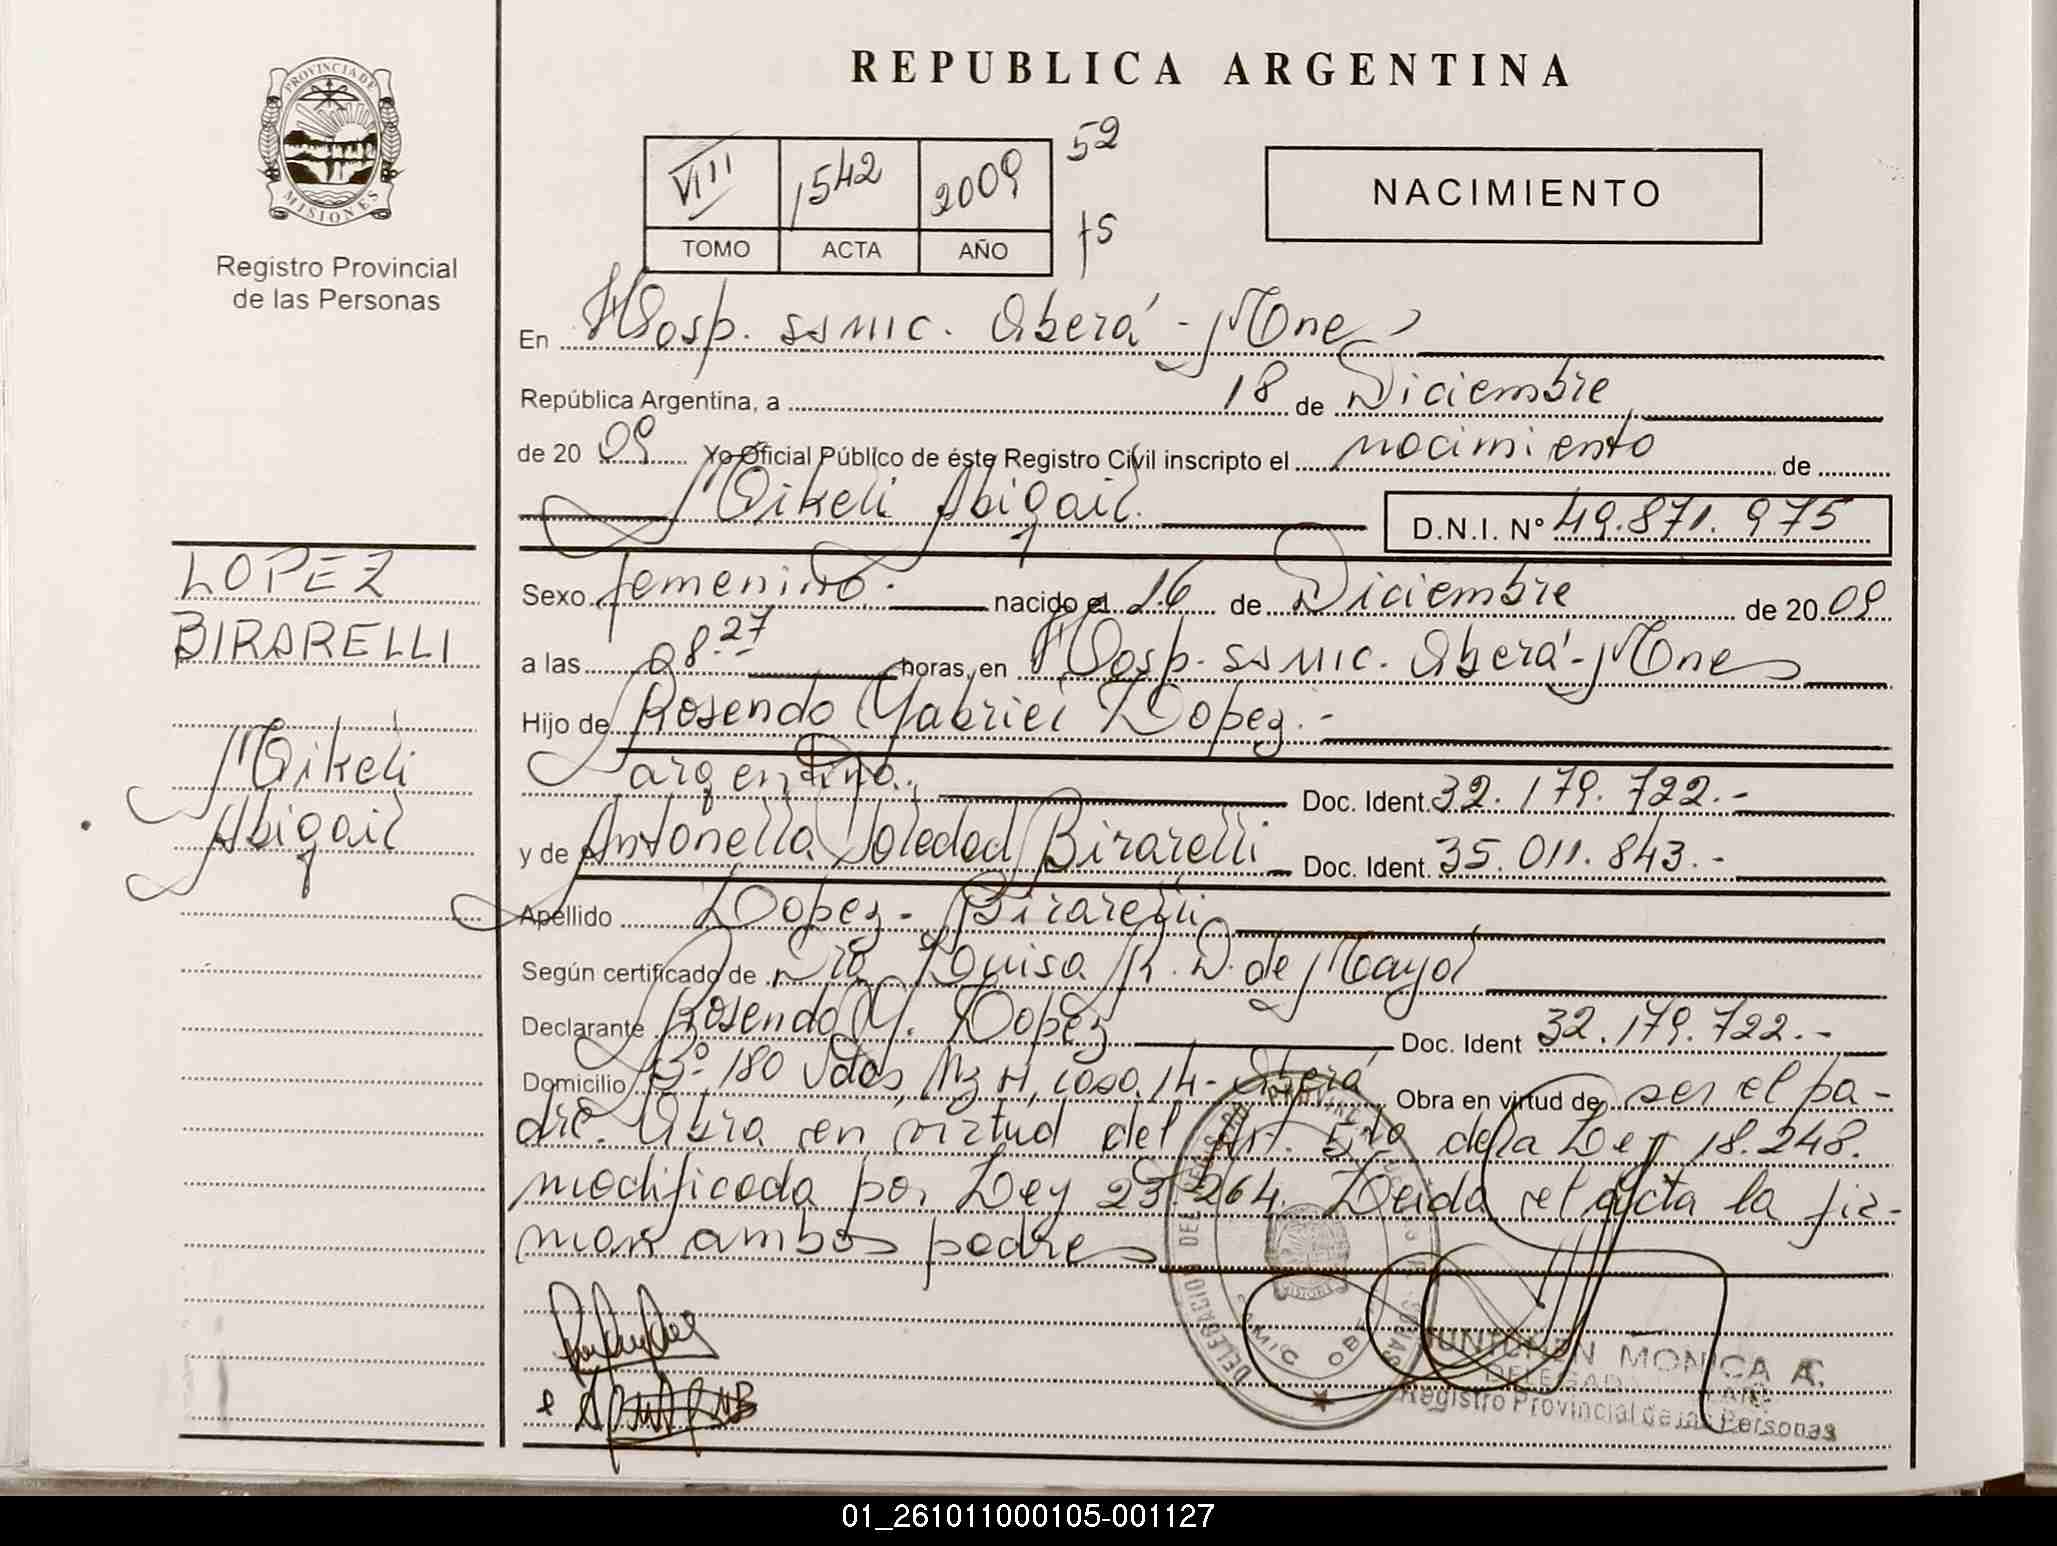 REPUBLICA ARGENTINA
PROVINCIA DE
MISIONES
Registro Provincial
de las Personas
VIII 1542 2009 52
TOMO ACTA AÑO 75
NACIMIENTO
En Hosp. SSMIC. Oberá - Mnes
República Argentina, a 18 de Diciembre
de 20 09 Yo Oficial Público de éste Registro Civil inscripto el nacimiento de
Mikeli Abigail. D.N.I. Nº 49.871.975
LOPEZ
BIRARELLI
Mikeli
Abigail
Sexo femenino.- nacido el 16 de Diciembre de 20 09
a las 08.27 horas, en Hosp. SSMIC. Oberá - Mnes
Hijo de Rosendo Gabriel Lopez.-
argentino. Doc. Ident. 32.179.722.-
y de Antonella Soledad Birarelli Doc. Ident. 35.011.843.-
Apellido Lopez - Birarelli
Según certificado de Dra. Luisa R. D. de Mayol
Declarante Rosendo G. Lopez Doc. Ident 32.179.722.-
Domicilio Bº 180 Vdas, Mz H, casa 14 - Oberá Obra en virtud de ser el pa-
dre. Obra en virtud del Art. 5to de la Ley 18.248.
modificada por Ley 23.264. Leida el acta la fir-
man ambos padres
MONICA A.
Registro Provincial de las Personas
01_261011000105-001127